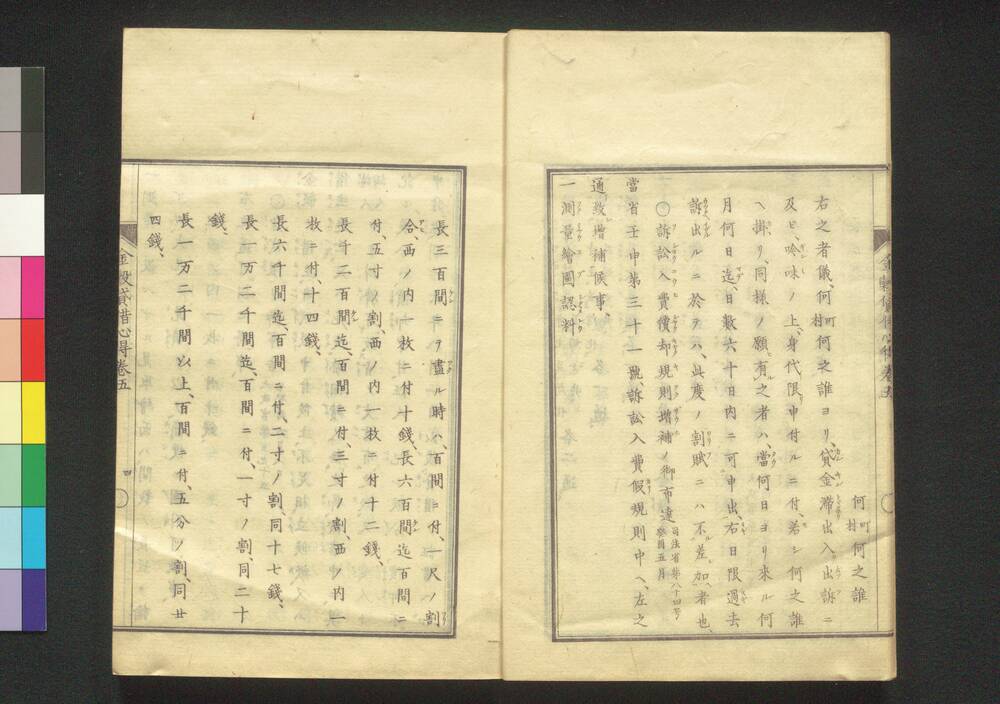 何町村何之誰
右之者儀、何町村何之誰ヨリ、貸金滯出入、出訴ニ
及ヒ、吟味ノ上、身代限申付ルニ付、若シ何之誰
ヘ掛リ、同様ノ願有之者ハ、當何日ヨリ来ル何
月何日迄、日數六十日内ニ可申出、右日限過去
訴出ルニ於テハ、此度ノ割賦ニハ不差加者也、
◯訴訟入費償却規則増補ノ御布達 司法省第八十四号 癸酉五月
當省壬申第三十一號、訴訟入費假規則中ヘ、左之
通致増補候事、
一測量繪圖認料
長三百間ニテ盡ル時ハ、百間ニ付、一尺ノ割
合西ノ内一枚ニ付十錢、長六百間迄百間ニ
付、五寸ノ割、西ノ内一枚ニ付十二錢、
長千二百間迄、百間ニ付、三寸ノ割、西ノ内一
枚ニ付、十四錢、
長六千間迄、百間ニ付、二寸ノ割、同十七錢、
長一万二千間迄、百間ニ付、一寸ノ割、同二十
錢、
長一万二千間以上、百間ニ付、五分ノ割、同廿
四錢、
金穀貸借心得巻五
四